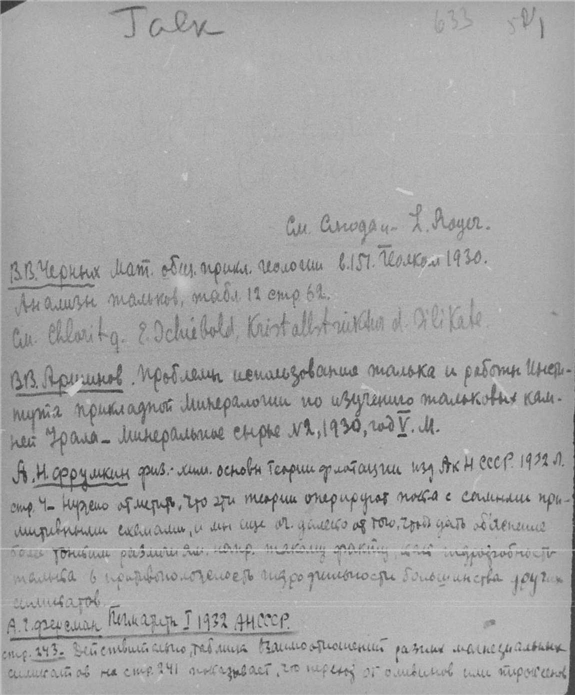 Talk 633
См. Слюдам - L. Royer.
В.В. Черных Мат. общ. прикл. геологии в. 151. Геолком 1930.
Анализы тальков, табл 12 стр 62.
См. Chlorit g. E. Schiebold, Kristallstruktur d. Silikate.
В.В. Аршинов. Проблемы использования талька и работы Инсти-
тута прикладной минералогии по изучению тальковых кам-
ней Урала - Минеральное сырье №2, 1930, год V. М.
А.Н Фрумкин физ.-хим. основы теории флотации изд Ак Н СССР. 1932 Л.
стр. 4 - Нужно отметить, что эти теории оперируют пока с самыми при-
митивными схемами, и мы еще оч далеко от того, чтоб дать объяснение
более тонким различиям, напр. такому факту, как гидрофобность
талька в противоположность гидрофильности большинства других
силикатов.
А.Е. Ферсман Пегматиты I 1932 АН СССР.
стр. 243 - Действительно, таблица взаимоотношений разных магнезиальных
силикатов на стр. 241 показывает, что переход от оливинов или пироксенов